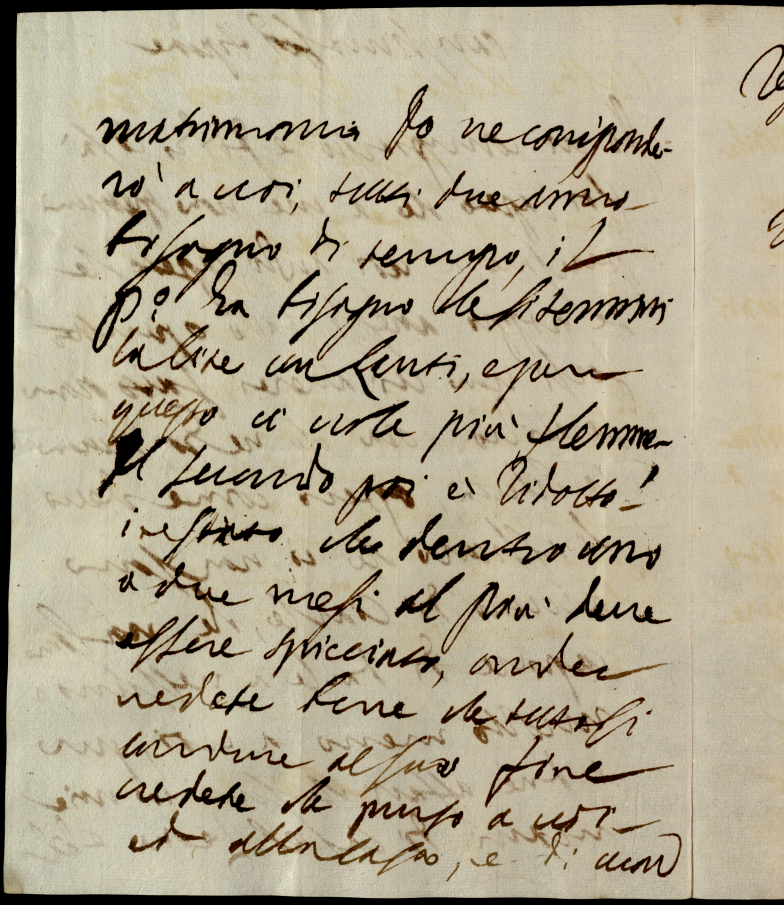 matrimonia Io ne corrisponde-
rò a voi, tutti due anno
bisogno di tempo, il
p.º ha bisogno che si termini
la lite con Lenti, e per
questo ci vole più flemma
Il secondo poi è ridotto
in stato che dentro uno
o due mesi al più deve
essere spicciato, onde
vedete bene che tutto si
conduce al suo fine
credete che penso a voi
ed alla casa, e di cuore